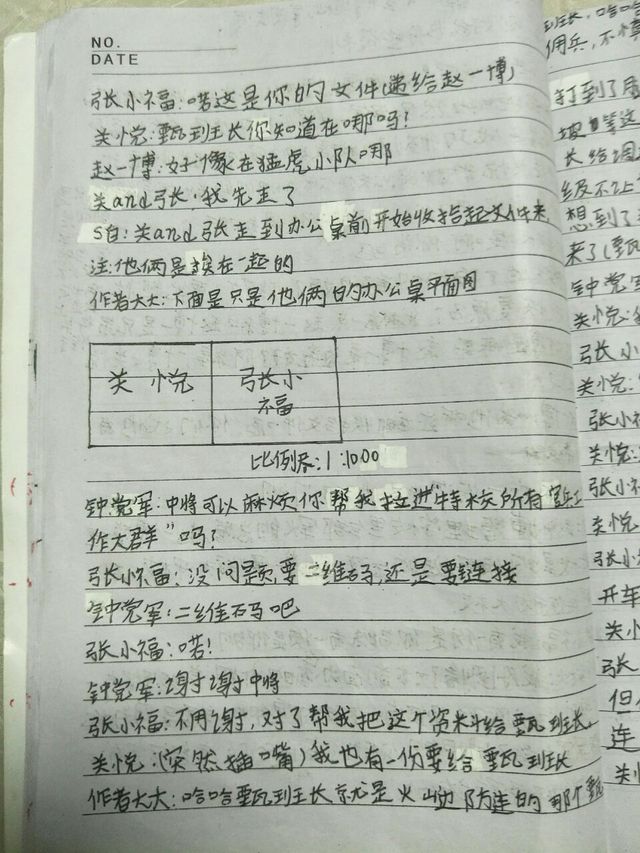 NO.
DATE
张小福:喏这是你的文件(递给赵一博)
关悦:甄班长你知道在哪吗?
赵一博:好像在猛虎小队哪
关and张:我先走了
S白:关and张走到办公桌前开始收拾起文件来
注:他俩是挨在一起的
作者大大:下面是只是他俩的办公桌平面图
关 悦 张小
福
比例尺:1:1000
钟党军:中将可以麻烦你帮我拉进"特战所有官兵工
作大群"吗?
张小福:没问题,要二维码,还是要链接
钟党军:二维码吧
张小福:喏!
钟党军:谢谢中将
张小福:不用谢,对了帮我把这个资料给甄班长
关悦:(突然插嘴)我也有一份要给甄班长
作者大大:哈哈甄班长就是火 防连的那个甄
班长,哈哈
佣兵,不
打到了
级不让
想到了
来了(甄
钟党军
关悦:
张小
关悦:
张小福
关悦:
张小福
关悦
张小福
开车
关小
张
但
连
关悦